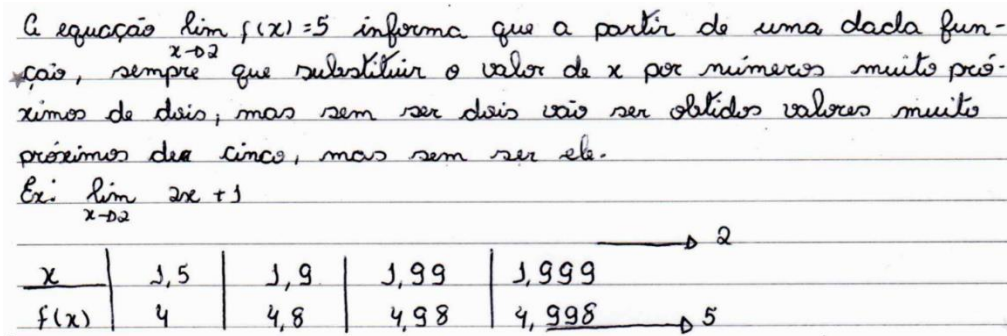 A equação lim f(x) = 5 informa que a partir de uma dada fun-
x→2
ção, sempre que substituir o valor de x por números muito pró-
ximos de dois, mas sem ser dois vão ser obtidos valores muito
próximos de cinco, mas sem ser ele.
Ex: lim 2x + 1
x→2
→ 2
x | 1,5 | 1,9 | 1,99 | 1,999
f(x) | 4 | 4,8 | 4,98 | 4,998 → 5